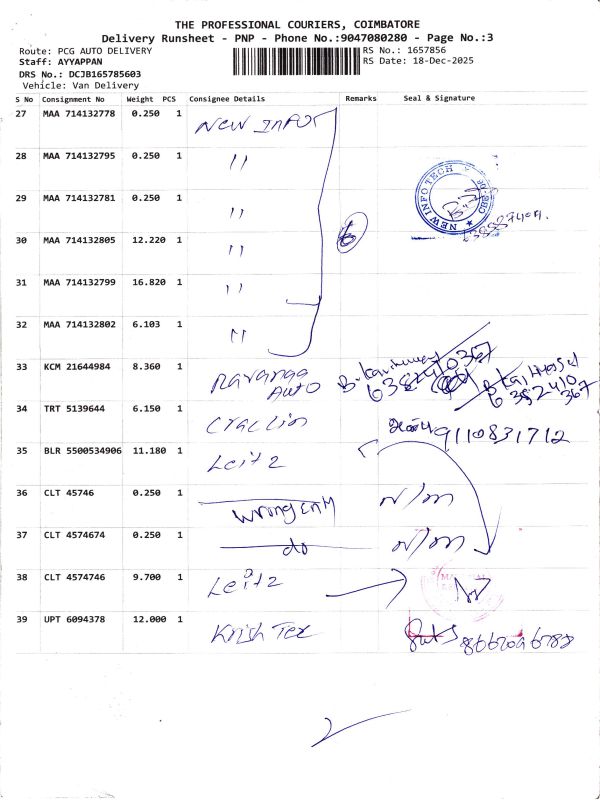 THE PROFESSIONAL COURIERS, COIMBATORE
Delivery Runsheet - PNP - Phone No.:9047080280 - Page No.:3
Route: PCG AUTO DELIVERY
RS No.: 1657856
Staff: AYYAPPAN
RS Date: 18-Dec-2025
DRS No.: DCJB165785603
Vehicle: Van Delivery
S No Consignment No Weight PCS Consignee Details Remarks Seal & Signature
27 MAA 714132778 0.250 1 New Infot
28 MAA 714132795 0.250 1 "
NEW INFO TECH
29 MAA 714132781 0.250 1 "
30 MAA 714132805 12.220 1 " 6
31 MAA 714132799 16.820 1 "
32 MAA 714132802 6.103 1 "
33 KCM 21644984 8.360 1
Auto
6382410367
6382410
367
34 TRT 5139644 6.150 1
9110831712
35 BLR 5500534906 11.180 1 Leitz
36 CLT 45746 0.250 1 N/m
37 CLT 4574674 0.250 1 do N/m
38 CLT 4574746 9.700 1 Leitz
39 UPT 6094378 12.000 1 Krish Tex